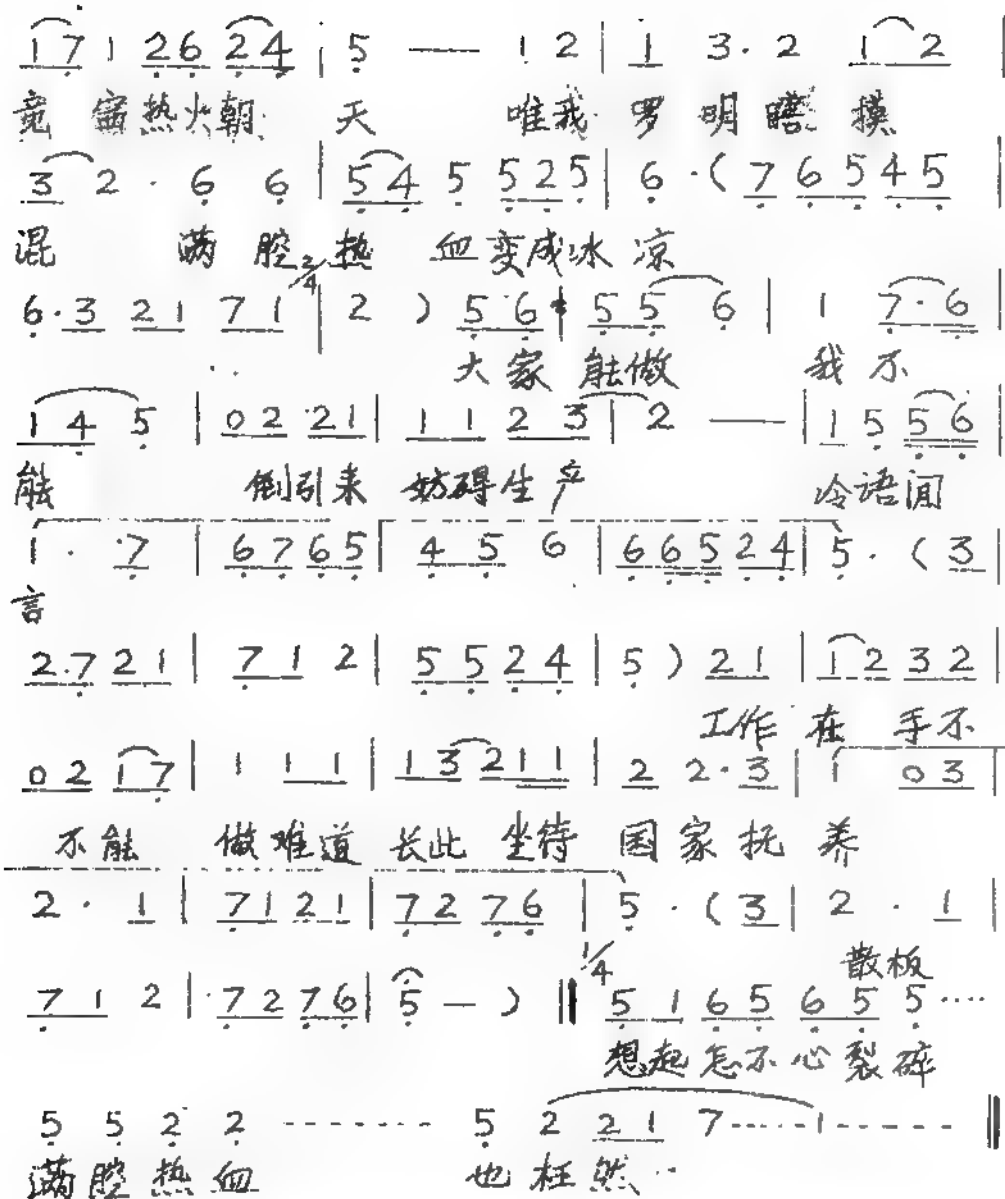 1 7 1 2 6 2 4 | 5 — 1 2 | 1 3. 2 1 2 |
竞 富 热火朝 天 唯我 罗 明 瞎 摸
3 2 · 6 6 | 5 4 5 5 2 5 | 6 · ( 7 6 5 4 5 |
混 满 腔 热 血变成冰 凉
6 · 3 2 1 7 1 | 2/4 2 ) 5 6 | 5 5 6 | 1 7 · 6 |
大 家 能做 我 不
1 4 5 | 0 2 2 1 | 1 1 2 3 | 2 — | 1 5 5 6 |
能 倒引来 妨碍生产 冷语闻
1 · 7 | 6 7 6 5 | 4 5 6 | 6 6 5 2 4 | 5 · ( 3 |
言
2 · 7 2 1 | 7 1 2 | 5 5 2 4 | 5 ) 2 1 | 1 2 3 2 |
工作 在 手不
0 2 1 7 | 1 1 1 | 1 3 2 1 1 | 2 2 · 3 | 1 0 3 |
不能 做难道 长此 坐待 国 家 抚 养
2 · 1 | 7 1 2 1 | 7 2 7 6 | 5 · ( 3 | 2 · 1 |
散板
7 1 2 | 7 2 7 6 | 5 — ) ‖ 1/4 5 1 6 5 6 5 5 ····
想起怎不心裂碎
5 5 2 2 -------- 5 2 2 1 7 ----- 1 ------- ‖
满腔热血 也枉然